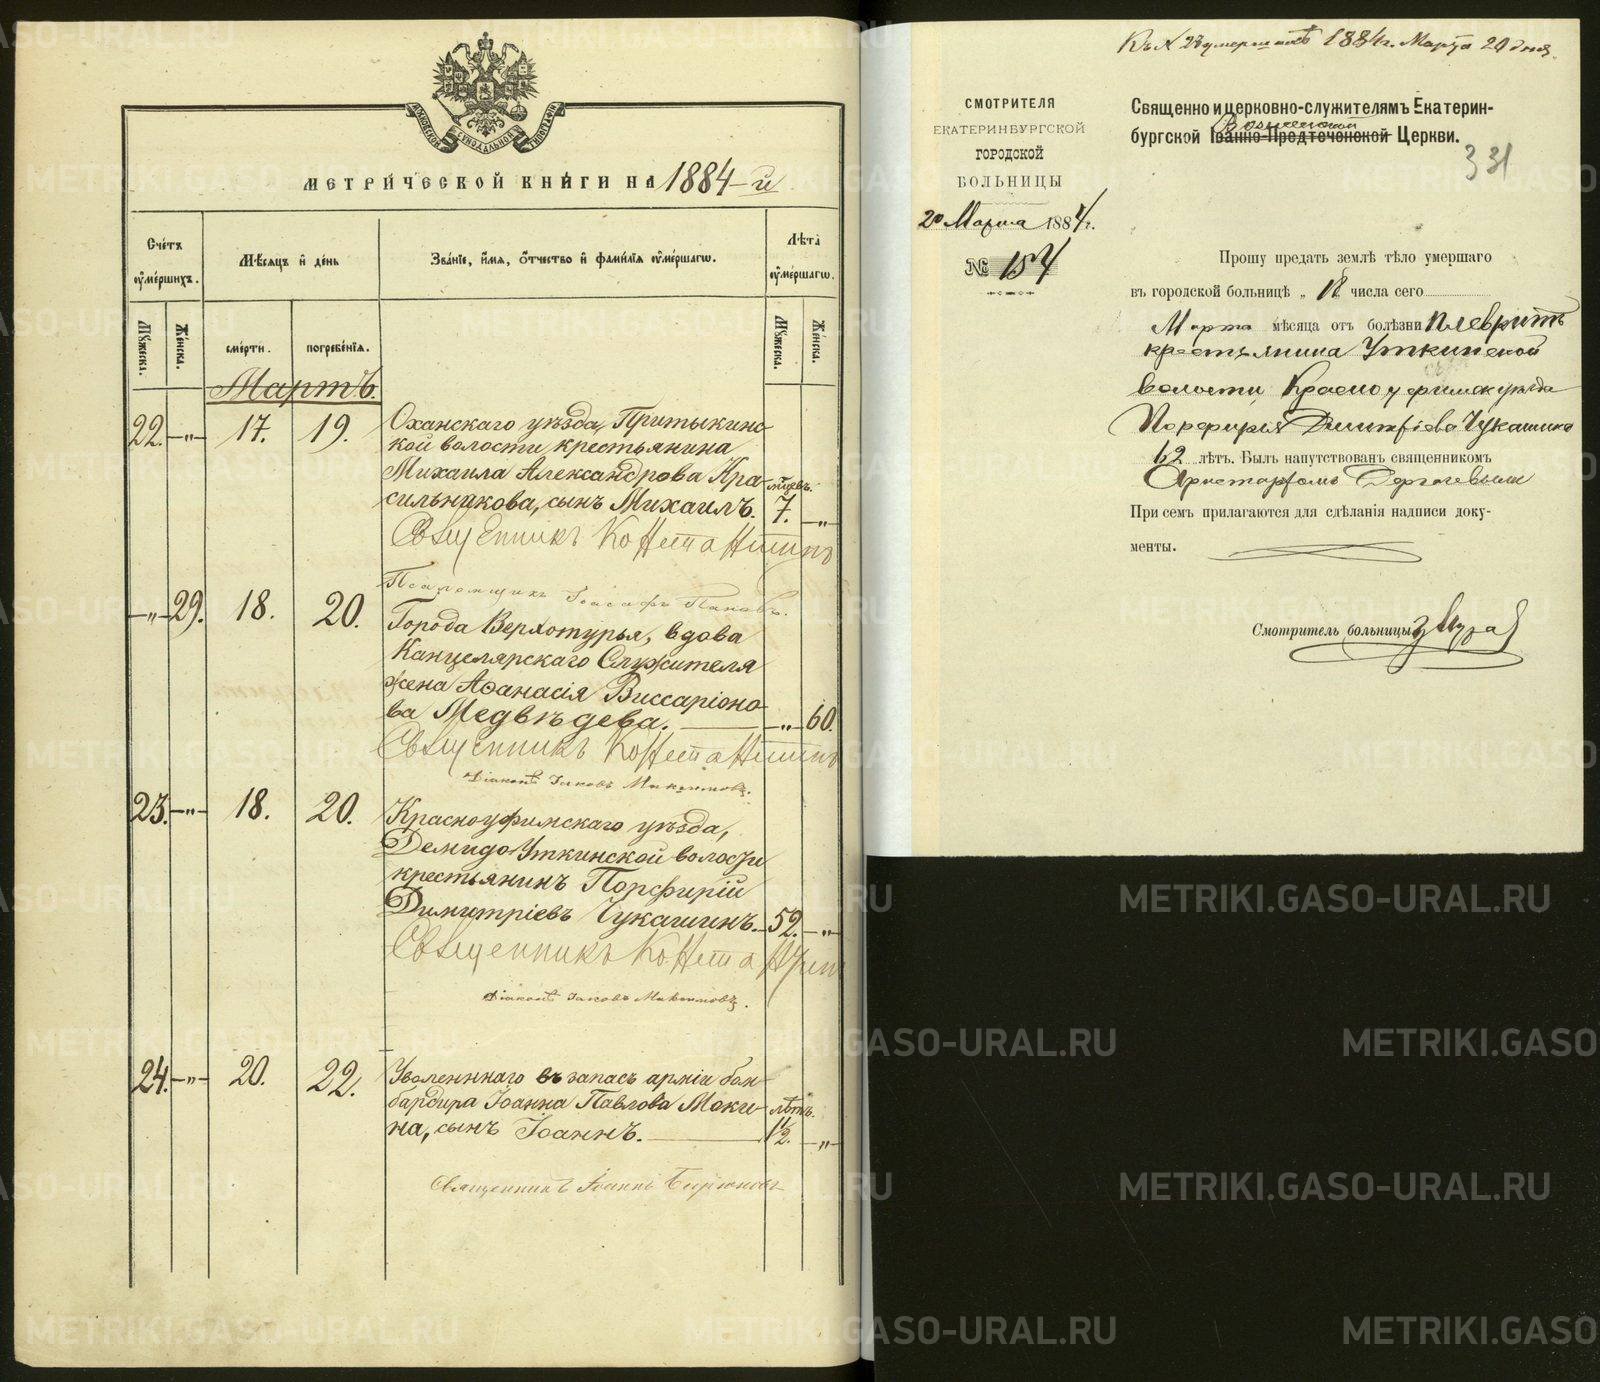 МЕТРИЧЕСКОЙ КНИГИ НА 1884-й
Счетъ умершихъ.
Мѣсяцъ и день
Званіе, имя, отчество и фамилія умершаго.
Лѣта умершаго.
Мужеска.
Женска.
смерти.
погребенія.
Мужеска.
Женска.
Мартъ.
22. —„— 17. 19.
Оханскаго уѣзда, Притыкинс-
кой волости, крестьянина
Михаила Александрова Кра-
сильникова, сынъ Михаилъ.
мѣсяцевъ. 7. —„—
Священникъ Константинъ
Псаломщикъ Іоасафъ Пановъ.
—„— 29. 18. 20.
Города Верхотурья, вдова
Канцелярскаго Служителя
жена Аѳанасія Виссаріоно-
ва Медвѣдева. —„— 60.
Священникъ Константинъ
Діаконъ Іаковъ Максимовъ.
23. —„— 18. 20.
Красноуфимскаго уѣзда,
Демидо Уткинской волости
крестьянинъ Порфирій
Димитріевъ Чукашинъ. 52. —„—
Священникъ Констант
Діаконъ Іаковъ Максимовъ.
24. —„— 20. 22.
Уволеннаго въ запасъ арміи бом-
бардира Іоанна Павлова Моки-
на, сынъ Іоаннъ.
лѣтъ. 1½. —„—
Священникъ Іоаннъ Бирюковъ
Къ № 23 умершихъ 1884 г. Марта 20 дня.
СМОТРИТЕЛЯ
ЕКАТЕРИНБУРГСКОЙ
ГОРОДСКОЙ
БОЛЬНИЦЫ
20 Марта 1884 г.
№ 154
Священно и церковно-служителямъ Екатерин-
Вознесенской
бургской Іванно-Предтеченской Церкви.
331
Прошу предать землѣ тѣло умершаго
въ городской больницѣ „ 18 числа сего
Марта мѣсяца отъ болѣзни Плевритъ
крестьянина Уткинской
волости, Красноуфимск уѣзда
Порфирія Дмитріева Чукашина
52 лѣтъ. Былъ напутствованъ священникомъ
Аристархомъ Дергачевым
При семъ прилагаются для сдѣланія надписи доку-
менты.
Смотритель больницы
METRIKI.GASO-URAL.RU